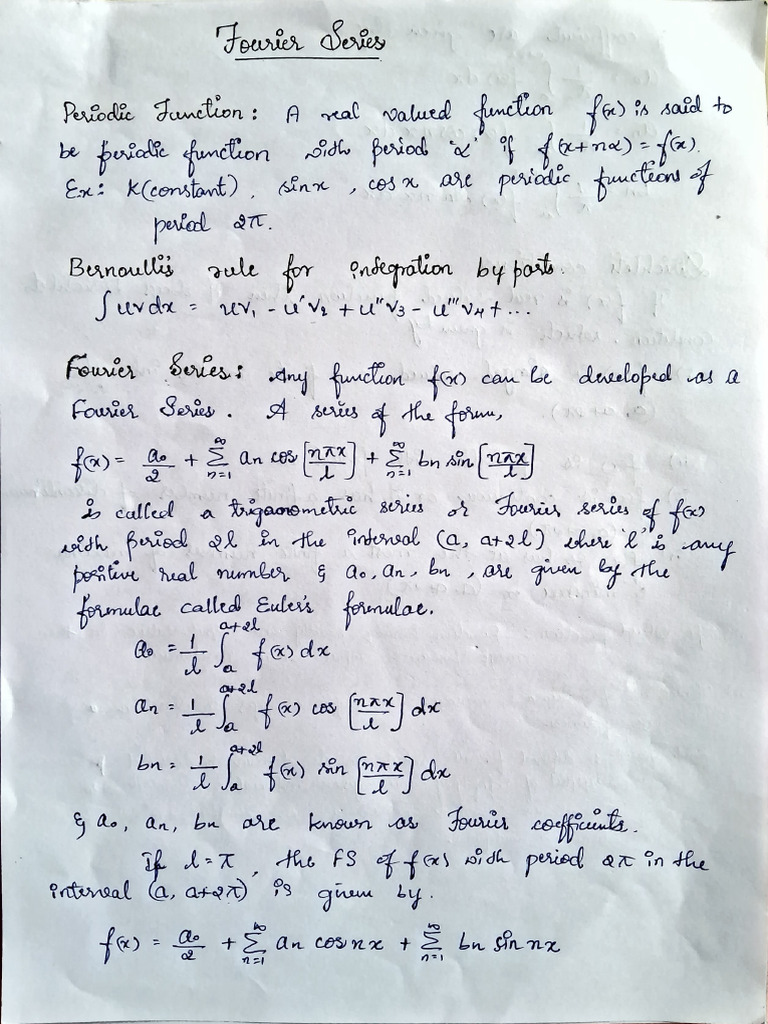 Fourier Series
Periodic Function : A real valued function f(x) is said to
be periodic function with period 'α' if f(x+nα) = f(x).
Ex: K(constant), sinx, cosx are periodic functions of
period 2π.
Bernoulli's rule for integration by parts.
∫uvdx = uv₁ - u'v₂ + u''v₃ - u'''v₄ + ...
Fourier Series: Any function f(x) can be developed as a
Fourier Series. A series of the form,
f(x) = a₀/2 + ∑_{n=1}^{∞} an cos [nπx/l] + ∑_{n=1}^{∞} bn sin [nπx/l]
is called a trigonometric series or Fourier series of f(x)
with period 2l in the interval (a, a+2l) where 'l' is any
positive real number & a₀, an, bn, are given by the
formulae called Euler's formulae.
a₀ = 1/l ∫_{a}^{a+2l} f(x) dx
an = 1/l ∫_{a}^{a+2l} f(x) cos [nπx/l] dx
bn = 1/l ∫_{a}^{a+2l} f(x) sin [nπx/l] dx
& a₀, an, bn are known as Fourier coefficients.
If l=π, the FS of f(x) with period 2π in the
interval (a, a+2π) is given by.
f(x) = a₀/2 + ∑_{n=1}^{∞} an cosnx + ∑_{n=1}^{∞} bn sinnx